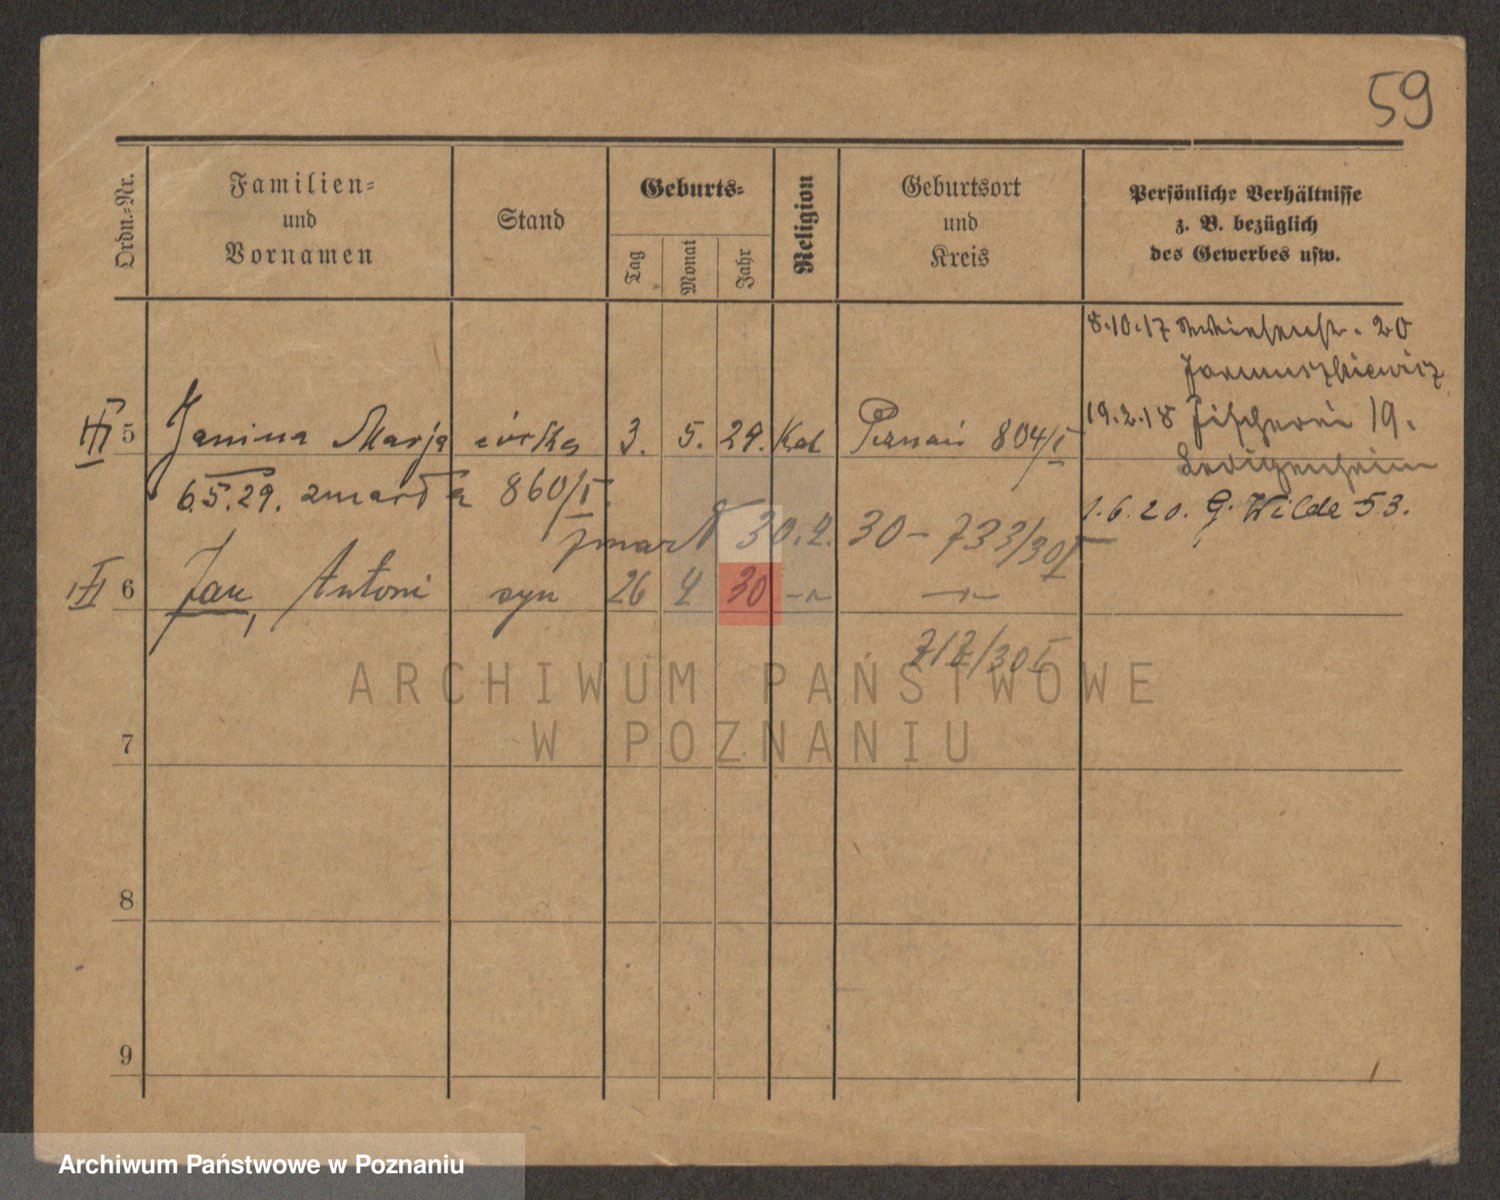 59
Ordn.=Nr.
Familien=
und
Vornamen
Stand
Geburts=
Tag
Monat
Jahr
Religion
Geburtsort
und
Kreis
Persönliche Verhältnisse
z. B. bezüglich
des Gewerbes usw.
8.10.17 20
Jarmuszkiewicz
19.2.18 Fischerei 19.
Ledigenheim
1.6.20. G. Wilda 53.
III 5 Janina Marja córka 3. 5. 29. Kat Poznań 804/I
6.5.29. zmarła 860/I
zmarł 30.4.30 - 733/30I
III 6 Jan, Antoni syn 26 4 30 -„- -„-
717/30 I
7
8
9
ARCHIWUM PAŃSTWOWE
W POZNANIU
Archiwum Państwowe w Poznaniu